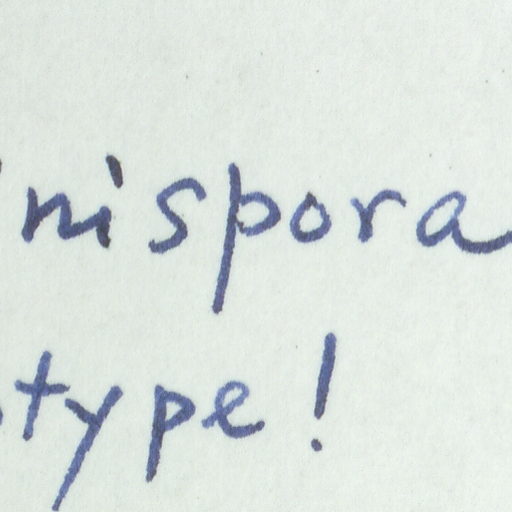 nispora
type!